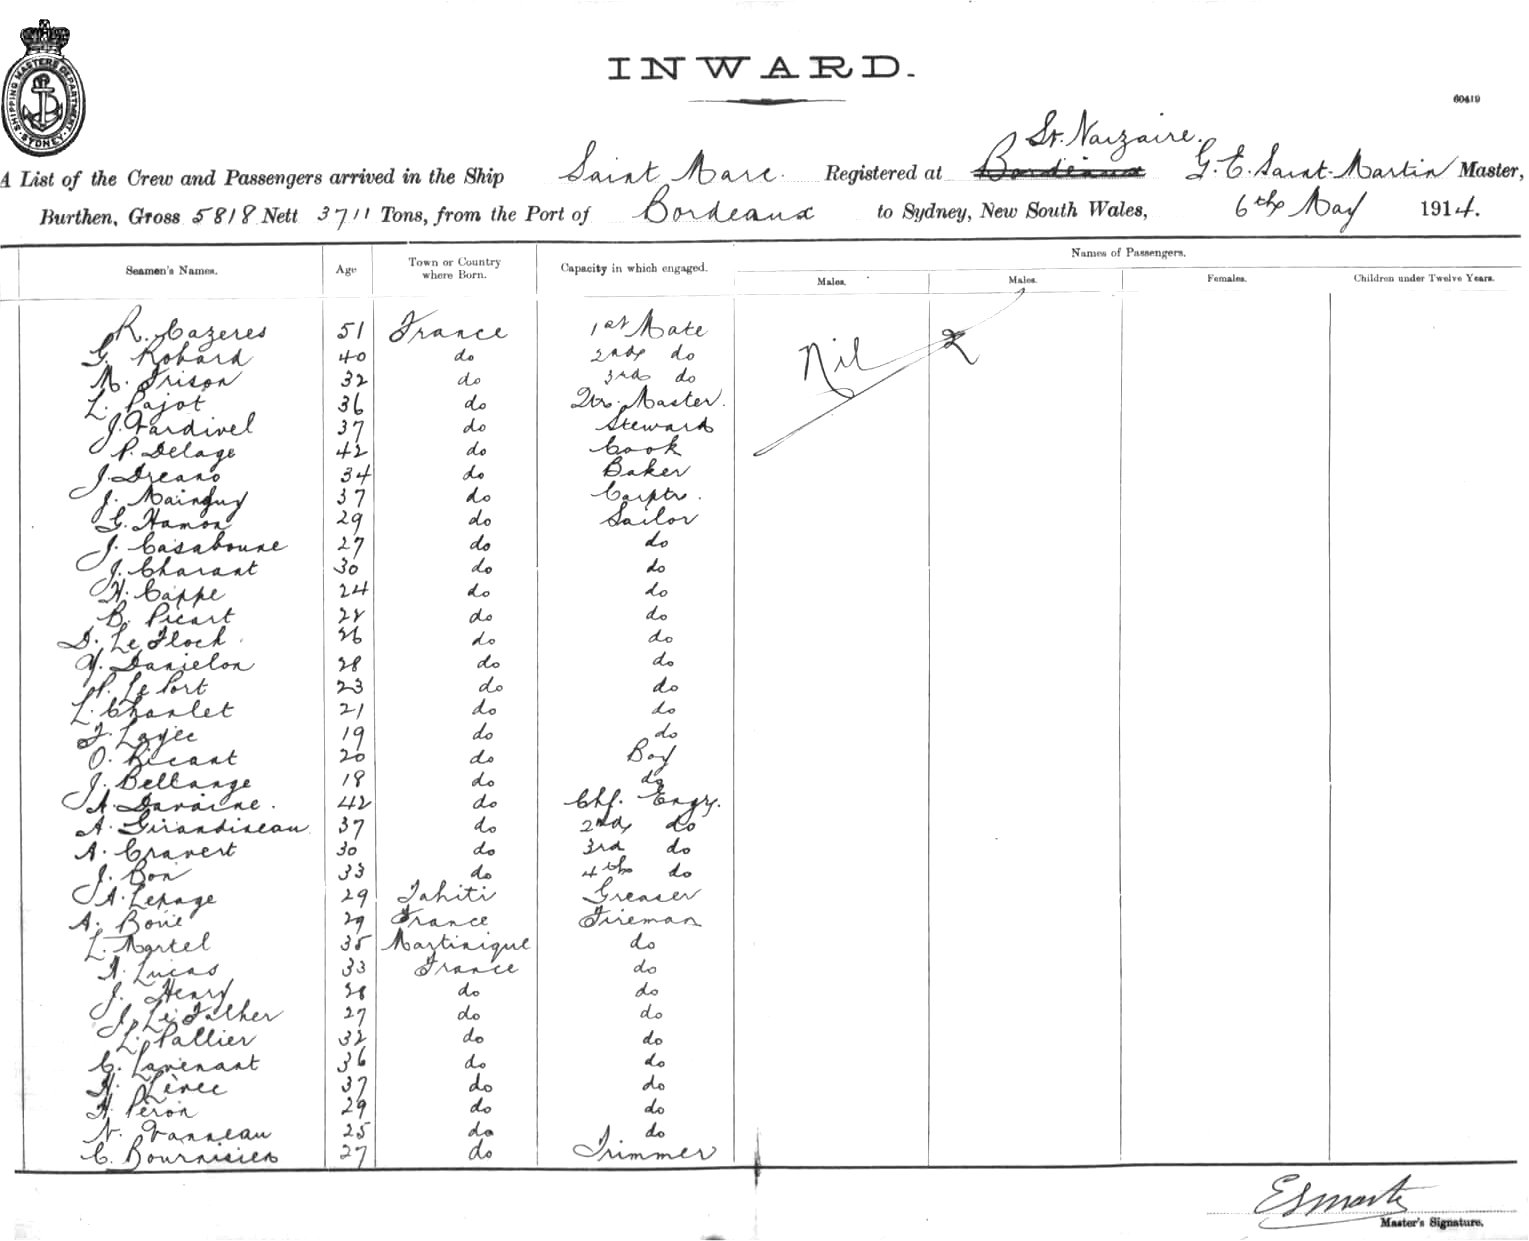 SHIPPING MASTERS DEPARTMENT SYDNEY
INWARD.
60419
St. Nazaire.
A List of the Crew and Passengers arrived in the Ship Saint Marc. Registered at Bordeaux G. E. Saint-Martin Master,
Burthen, Gross 5818 Nett 3711 Tons, from the Port of Bordeaux to Sydney, New South Wales, 6th May 1914.
Seamen's Names. Age Town or Country where Born. Capacity in which engaged. Names of Passengers.
Males. Males. Females. Children under Twelve Years.
R. Cazeres 51 France 1st Mate
G. Robard 40 do 2nd do
M. Frison 32 do 3rd do
L. Pajot 36 do Qtr. Master.
J. Tardivel 37 do Steward
P. Delage 42 do Cook
J. Dreano 34 do Baker
J. Mainguy 37 do Carptr.
G. Hamon 29 do Sailor
J. Casaboune 27 do do
J. Charant 30 do do
H. Cappe 24 do do
B. Picart 28 do do
D. Le Floch 26 do do
Y. Danielon 28 do do
P. Le Port 23 do do
L. Chanlet 21 do do
F. Layec 19 do do
O. Bicant 20 do Boy
J. Bellange 18 do do
A. Davaine. 42 do Chf. Engr.
A. Girandineau 37 do 2nd do
A. Cravert 30 do 3rd do
J. Bon 33 do 4th do
A. Lepage 29 Tahiti Greaser
A. Boué 29 France Fireman
L. Martel 35 Martinique do
A. Lucas 33 France do
J. Henry 28 do do
J. Le Falher 27 do do
L. Pallier 32 do do
C. Lavenant 36 do do
H. Lévec 37 do do
H. Péron 29 do do
N. Vanneau 25 do do
C. Bournisien 27 do Trimmer
Nil
Master's Signature.